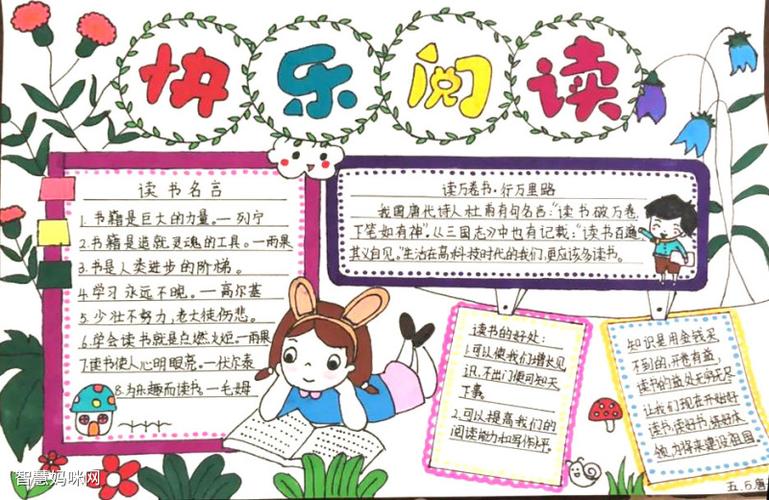 快乐阅读
读书名言
1.书籍是巨大的力量。—列宁
2.书籍是造就灵魂的工具。—雨果
3.书是人类进步的阶梯。
4.学习永远不晚。—高尔基
5.少壮不努力,老大徒伤悲。
6.学会读书就是点燃火炬。—雨果
7.读书使人心明眼亮。—伏尔泰
8.为乐趣而读书。—毛姆
读万卷书·行万里路
我国唐代诗人杜甫有句名言:“读书破万卷,
下笔如有神”。从三国志中也有记载:“读书百遍
其义自见。”生活在高科技时代的我们,更应该多读书。
读书的好处:
1.可以使我们增长见
识,不出门便可知天
下事。
2.可以提高我们的
阅读能力和写作水平。
知识是用金钱买
不到的,开卷有益,
读书的益处无穷无尽
让我们现在开始好
读书,读好书,练好本
领,为将来建设祖国
五.5
智慧妈咪网